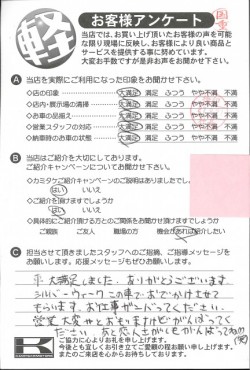 軽
お客様アンケート
当店では、お買い上げ頂いたお客様の声を可能
な限り現場に反映し、お客様により良い商品と
サービスを提供する事に努めております。
大変お手数ですが是非お声をお聞かせ下さい。
A 当店を実際にご利用になった印象をお聞かせ下さい。
◇店の印象 大満足 満足 ふつう やや不満 不満
◇店内・展示場の清掃 大満足 満足 ふつう やや不満 不満
◇お車の品揃え 大満足 満足 ふつう やや不満 不満
◇営業スタッフの対応 大満足 満足 ふつう やや不満 不満
◇納車時のお車の状態 大満足 満足 ふつう やや不満 不満
B 当店はご紹介を大切にしております。
ご紹介キャンペーンについてお聞かせ下さい。
◇カミタケご紹介キャンペーンのご説明はありましたでし
はい いいえ
◇ご紹介をお聞き頂けますでしょうか
はい いいえ
◇具体的にご紹介頂ける方とのご関係をお聞かせ頂けますでしょうか
ご親族 ご友人 職場の方 機会があれば紹介したい
C 担当させて頂きましたスタッフへのご指摘、ご指導メッセージを
お願いします。応援メッセージもぜひお願いします。
大満足しました。ありがとうございます
シルバーウィークこの車でおでかけさせて
もらいます。お仕事がんばってください。
営業大変やとおもいますけどがんばってく
ださい
K
ご協力に心よりお礼を申し上げます。
今後とも宜しくお引き立てご愛顧のお程お願い申し上げます。
またのご来店を心からお待ちしております。